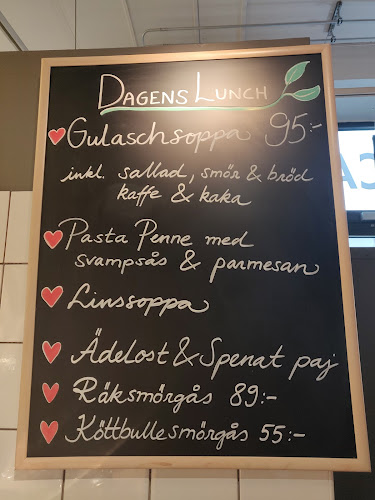 DAGENS LUNCH
Gulaschsoppa 95:-
inkl. sallad, smör & bröd
kaffe & kaka
Pasta Penne med
svampsås & parmesan
Linssoppa
Ädelost & Spenat paj
Räksmörgås 89:-
Köttbullesmörgås 55:-